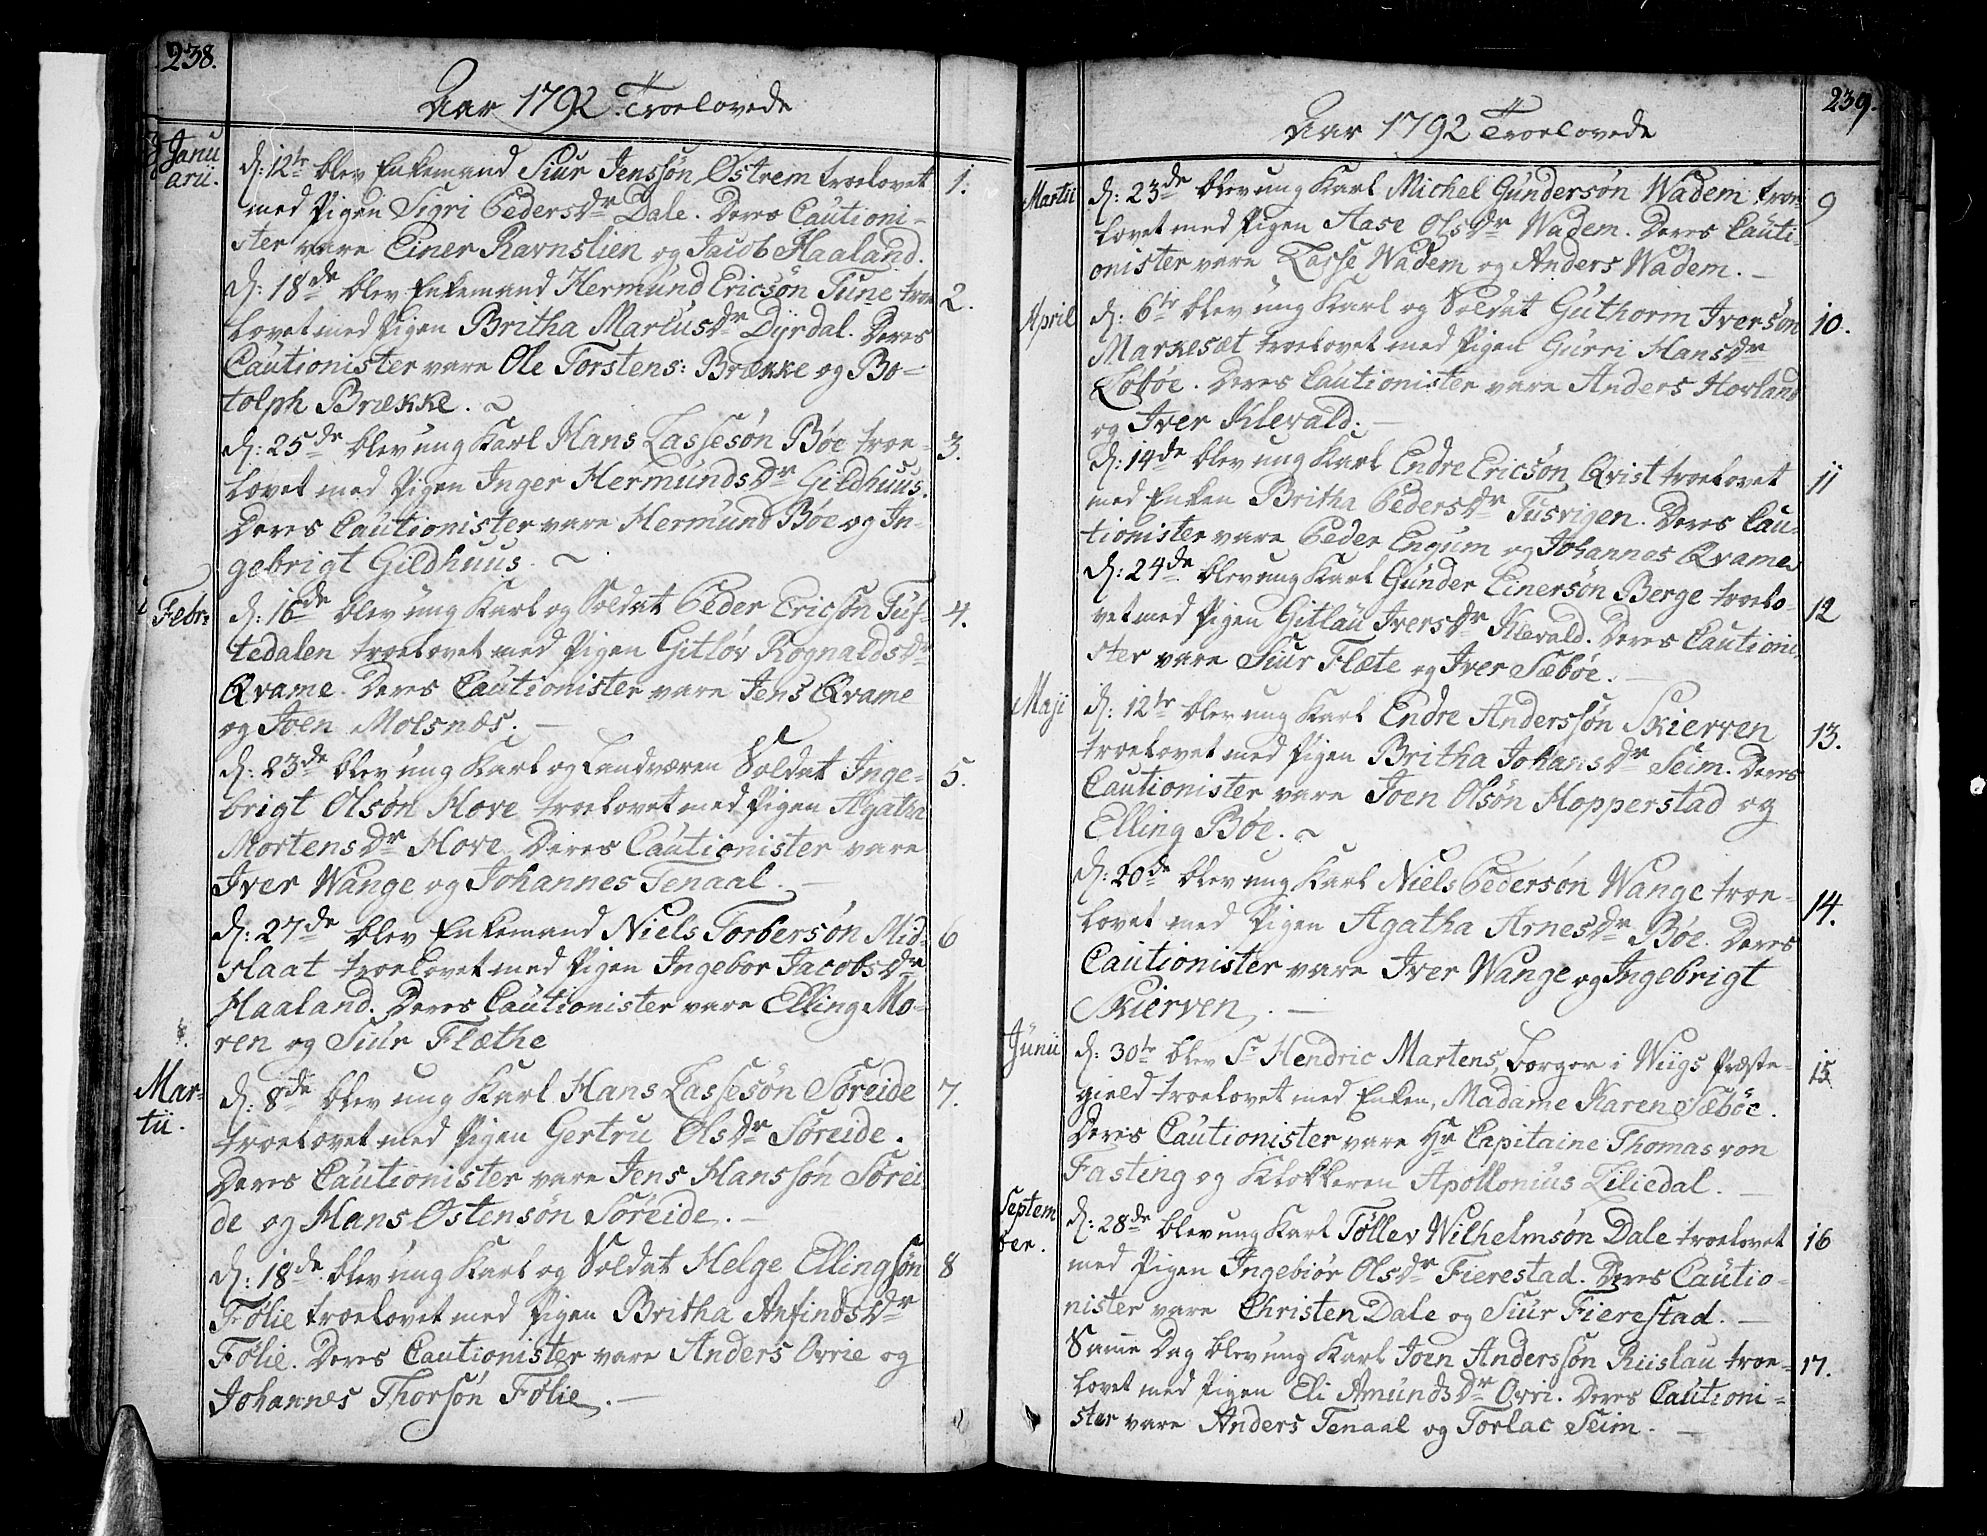 238.
Aar 1792 Troelovede
Janu
arii.
d: 12te blev Enkemand Siur Jenssøn Østrem troelovet 1.
med Pigen Sigri PedersDr Dale. Deres Cautioni-
ster vare Einer Ravnslien og Jacob Haaland.
d: 18de blev Enkemand Hermund Ericsøn Tune troe 2.
lovet med Pigen Britha MarcusDr Dÿrdal. Deres
Cautionister vare Ole Torstens: Brække og Bo-
tolph Brække.
d: 25de blev ung Karl Hans Lassesøn Bøe troe- 3.
lovet med Pigen Inger HermundsDr Gildhuus.
Deres Cautionister vare Hermund Bøe og In-
gebrigt Gildhuus.
Febr: d: 16de blev ung Karl og Soldat Peder Ericsøn Tuf- 4.
tedalen troelovet med Pigen Gitløv RognaldsDr
Qvame. Deres Cautionister vare Jens Qvame
og Joen Molsnæs.
d: 23de blev ung Karl og Landværen Soldat Inge- 5.
brigt Olsøn Hove troelovet med Pigen Agatha
MortensDr Hove. Deres Cautionister vare
Iver Wange og Johannes Tenaal.
d: 27de blev Enkemand Niels Torbersøn Mid- 6
flaat troelovet med Pigen Ingebor JacobsDr
Haaland. Deres Cautionister vare Elling Mo-
ren og Siur Flæthe
Mar-
tii.
d: 8de blev ung Karl Hans Lassesøn Søreide 7.
troelovet med Pigen Gertru OlsDr Søreide.
Deres Cautionister vare Jens Hanssøn Sørei
de og Hans Ostensøn Søreide.
d: 18de blev ung Karl og Soldat Helge Ellingsøn 8
Følie troelovet med Pigen Britha AnfindsDr
Følie. Deres Cautionister vare Anders Ovrie og
Johannes Thorsøn Følie.
239.
Aar 1792 Troelovede
Martii d: 23de blev ung Karl Michel Gundersøn Wadem troe- 9
lovet med Pigen Aase OlsDr Wadem. Deres Cauti-
onister vare Lasse Wadem og Anders Wadem.
April d: 6te blev ung Karl og Soldat Guthorm Iversøn 10.
Markesæt troelovet med Pigen Gurri HansDr
Løbøe. Deres Cautionister vare Anders Hovland
og Iver Klevald.
d: 14de blev ung Karl Endre Ericsøn Qvist troelovet 11
med Enken Britha PedersDr Tusvigen. Deres Cau-
tionister vare Peder Engum og Johannes Qvame
d: 24de blev ung Karl Gunder Einersøn Berge troelo- 12
vet med Pigen Gitlau IversDr Klevald. Deres Cautioni-
ster vare Siur Flæte og Iver Sæbøe.
Maji d: 12te blev ung Karl Endre Anderssøn Skierven 13.
troelovet med Pigen Britha JohansDr Seim. Deres
Cautionister vare Joen Olsøn Hopperstad og
Elling Bøe.
d: 20de blev ung Karl Niels Pedersøn Wange troe- 14.
lovet med Pigen Agatha ArnesDr Bøe. Deres
Cautionister vare Iver Wange og Ingebrigt
Skierven.
Junii d: 30te blev Sr Hendric Martens, borger i Wiigs Præste- 15
gield troelovet med Enken, Madame Karen Sæbøe.
Deres Cautionister vare Hr Capitaine Thomas von
Fasting og Klokkeren Apollonius Liliedal.
Septem
ber.
d: 28de blev ung Karl Tøllev Wilhelmsøn Dale troelovet 16
med Pigen Ingebiør OlsDr Fierestad. Deres Cautio-
nister vare Christen Dale og Siur Fierestad.
Samme Dag blev ung Karl Joen Anderssøn Riislau troe- 17.
lovet med Pigen Eli AmundsDr Ovri. Deres Cautioni-
ster vare Anders Tenaal og Torlac Seim.